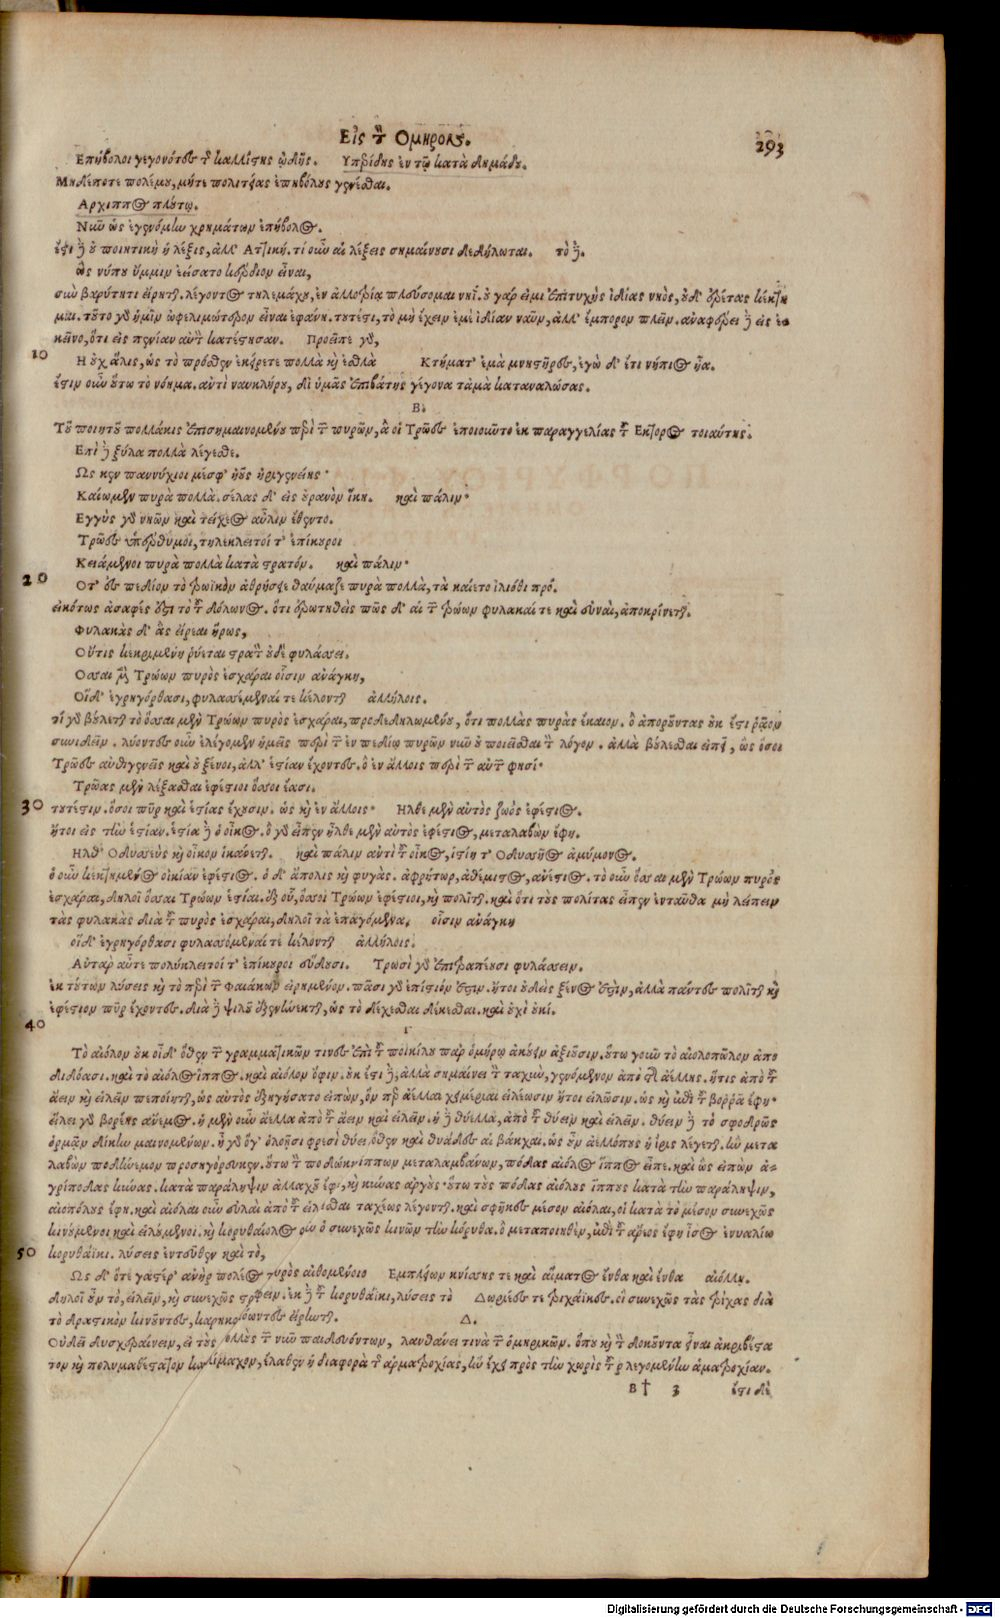 Εἰς τ Ομηρον. 293
Επήβολοι γεγονότες τ καλλίστης ᾠδῆς. Υπερίδης ἐν τῷ κατὰ Δημάδου.
Μηδέποτε πολέμου, μήτε πολιτείας ἐπηβόλους γενέσθαι.
Αρχιππος πλούτῳ.
Νυνῶ ὡς ἐγενόμην χρημάτων ἐπήβολος.
ἔστι ἢ οὐ ποιητικὴ ἡ λέξις, ἀλλ' Αττική. τί οὖν αἱ λέξεις σημαίνουσι δεδήλωται. τὸ ἢ.
ὥς νύ που ὔμμιν ἐείσατο κέρδιον εἶναι,
σὺν βαρύτητι εἴρηται λέγοντος τηλεμάχου, ἐν ἀλλοτρίᾳ πλεύσομαι νηΐ. οὐ γάρ εἰμι ἐπιτυχὴς ἰδίας νηὸς, οὐδ' ἐρέτας κέκτη
μαι. τοῦτο γὰρ ἡμῖν ὠφελιμώτερον εἶναι ἐφάνη. τουτέστι, τὸ μὴ ἔχειν ἐμὲ ἰδίαν ναῦν, ἀλλ' ἔμπορον πλεῖν. ἀναφέρει ἢ εἰς ἐ-
κεῖνο, ὅτι εἰς πενίαν αὐτὸν κατέστησαν. Προεῖπε γὰρ,
10 Η οὐχ ἅλις, ὡς τὸ πρόσθεν ἐκείρετε πολλὰ καὶ ἐσθλὰ Κτήματ' ἐμὰ μνηστῆρες, ἐγὼ δ' ἔτι νήπιος ἦα.
ἔστιν οὖν οὕτω τὸ νόημα. αὐτὶ ναυκλήρου, δι' ὑμᾶς ἐπιβάτης γέγονα τἀμὰ καταναλώσας.
Β.
Τοῦ ποιητοῦ πολλάκις ἐπισημαινομένου περὶ τ πυρῶν, ἃ οἱ Τρῶες ἐποιοῦντο ἐκ παραγγελίας τ Εκτορος τοιαύτης.
Επὶ ἢ ξύλα πολλὰ λέγεσθε.
Ως κεν παννύχιοι μέσφ' ἠοῦς ἠριγενείης·
Καίωμεν πυρὰ πολλὰ. σέλας δ' εἰς οὐρανὸν ἵκη. καὶ πάλιν·
Εγγὺς γὰρ νηῶν καὶ τείχεος αὖλιν ἔθεντο.
Τρῶες ὑπέρθυμοι, τηλεκλειτοί τ' ἐπίκουροι
Κειάμενοι πυρὰ πολλὰ κατὰ στρατόν. καὶ πάλιν·
20 Οτ' ἐς πεδίον τὸ τρωϊκὸν ἀθρήσειε θαύμαζε πυρὰ πολλὰ, τὰ καίετο ἰλιόθι πρό.
εἰκότως ἀσαφές ἐστι τὸ τ Δόλωνος. ὅτι ἐρωτηθεὶς πῶς δ' αἱ τ τρώων φυλακαί τε καὶ εὐναὶ, ἀποκρίνεται.
Φυλακὰς δ' ἃς εἴρεαι ἥρως,
Οὔτις κεκριμένη ῥύεται στρατὸν οὐδὲ φυλάσσει.
Οσσαι μὲν Τρώων πυρὸς ἐσχάραι οἷσιν ἀνάγκη,
Οἵδ' ἐγρηγόρθασι, φυλασσέμεναί τε κέλονται ἀλλήλοις.
τί γὰρ βούλεται τὸ ὅσσαι μὲν Τρώων πυρὸς ἐσχάραι, προδεδηλωμένου, ὅτι πολλὰς πυρὰς ἔκαιον. ὃ ἀποροῦντας οὐκ ἔστι ῥᾴον
συνιδεῖν. λύοντες οὖν ἐλέγομεν ἡμεῖς περὶ τ ἐν πεδίῳ πυρῶν νυνῶ οὐ ποιεῖσθαι τ λόγον. ἀλλὰ βούλεσθαι εἰπεῖν, ὡς ὅσοι
Τρῶες αὐθιγενεῖς καὶ οὐ ξένοι, ἀλλ' ἑστίαν ἔχοντες. ὃ ἐν ἄλλοις περὶ τ αὐτ φησί·
Τρῶας μὲν λέξασθαι ἐφέστιοι ὅσσοι ἔασι.
30 τουτέστιν. ὅσοι πῦρ καὶ ἑστίας ἔχουσιν. ὡς καὶ ἐν ἄλλοις· Ηλθε μὲν αὐτὸς ζωὸς ἐφέστιος.
ἤτοι εἰς τὴν ἑστίαν. ἑστία ἢ ὁ οἶκος. ὃ γὰρ εἶπεν ἦλθε μὲν αὐτὸς ἐφέστιος, μεταλαβὼν ἔφη.
Ηλθ' Οδυσσεὺς καὶ οἶκον ἱκάνεται. καὶ πάλιν αὐτὶ τ οἶκος, ἱστίη τ' Οδυσσῆος ἀμύμονος.
ὁ οὖν κεκτημένος οἰκίαν ἐφέστιος. ὁ δ' ἄπολις καὶ φυγάς. ἀφρήτωρ, ἀθέμιστος, ἀνέστιος. τὸ οὖν ὅσσαι μὲν Τρώων πυρὸς
ἐσχάραι, δηλοῖ ὅσσαι Τρώων ἑστίαι. ἐξ οὗ, ὅσσοι Τρώων ἐφέστιοι, καὶ πολῖται. καὶ ὅτι τοὺς πολίτας εἶπεν ἐνταῦθα μὴ λείπειν
τὰς φυλακὰς διὰ τ πυρὸς ἐσχάραι, δηλοῖ τὰ ἐπαγόμενα. οἷσιν ἀνάγκη
οἵδ' ἐγρηγόρθασι φυλασσόμεναί τε κέλονται ἀλλήλοις.
Αὐτὰρ αὖτε πολύκλειτοί τ' ἐπίκουροι εὕδουσι. Τρωσὶ γὰρ ἐπιτραπέουσι φυλάσσειν.
ἐκ τούτων λύσεις καὶ τὸ περὶ τ Φαιάκων εἰρημένον. πᾶσι γὰρ ἐπίστιόν ἐστιν. ἤτοι οὐδεὶς ξένος ἐστὶν, ἀλλὰ πάντες πολῖται καὶ
ἐφέστιον πῦρ ἔχοντες. διὰ ἢ ψιλοῦ ἐξενήνεκται, ὡς τὸ δέχεσθαι δέκεσθαι. καὶ οὐχὶ οὐκί.
40 Γ
Τὸ αἰόλον οὐκ οἶδ' ὅθεν τ γραμματικῶν τινες ἐπὶ τ ποικίλου παρ' ὁμήρῳ ἀκούειν ἀξιοῦσιν. οὕτω γοῦν τὸ αἰολοπῶλον ἀπο
διδόασι. καὶ τὸ αἰόλος ἵππος. καὶ αἰόλον ὄφιν. οὐκ ἔστι ἢ, ἀλλὰ σημαίνει τ ταχὺν, γενόμενον ἀπὸ τ ἀέλλης. ἥτις ἀπὸ τ
ἄειν καὶ εἰλεῖν πεποίηται, ὡς αὐτὸς ἐξηγήσατο εἰπὼν, ὅν περ ἄελλαι χειμέριαι εἰλέωσιν ἤτοι εἰλῶσιν. ὡς καὶ ἐπὶ τ βορρᾶ ἔφη·
εἴλει γὰρ βορέης ἄνεμος. ἡ μὲν οὖν ἄελλα ἀπὸ τ ἄειν καὶ εἰλεῖν. ἡ ἢ θύελλα, ἀπὸ τ θύειν καὶ εἰλεῖν. θύειν ἢ τὸ σφοδρῶς
ὁρμᾷν δίκην μαινομένων. ἦ γὰρ ὅγ' ὀλοῇσι φρεσὶ θύει. ὅθεν καὶ θυάδες αἱ βάκχαι. ὡς οὖν ἀελλόπους ἡ ἶρις λέγεται. ἣν μετα
λαβὼν ποδήνεμον προσηγόρευκεν. οὕτω τ ποδῶκην ἵππων μεταλαμβάνων, πόδας αἰόλος ἵππος εἶπε. καὶ ὡς εἰπὼν ἀρ-
γίποδας κύνας. κατὰ παράληψιν ἀλλαχοῦ ἔφη, καὶ κύνας ἀργούς· οὕτω τοὺς πόδας αἰόλους ἵππους κατὰ τὴν παράληψιν,
αἰοπόλους ἔφη. καὶ αἰόλαι οὖν εὐλαὶ ἀπὸ τ εἰλεῖσθαι ταχέως λέγονται. καὶ σφῆκες μέσον αἰόλαι, οἱ κατὰ τὸ μέσον συνεχῶς
κινούμενοι καὶ εἰλούμενοι. καὶ κορυθαίολος οὖν ὁ συνεχῶς κινῶν τὴν κόρυθα. ὃ μεταποιηθὲν, ἐπὶ τ ἄρεος ἔφη ἶσος ἐνυαλίῳ
50 κορυθάϊκι. λύσεις ἐντεῦθεν καὶ τὸ,
Ως δ' ὅτε γαστέρ' ἀνὴρ πολέος πυρὸς αἰθομένοιο Εμπλείων κνίσσης τε καὶ αἵματος ἔνθα καὶ ἔνθα αἰόλλη.
Δηλοῖ οὖν τὸ, εἰλεῖν, καὶ συνεχῶς στρέφειν. ἐκ ἢ τ κορυθάϊκι, λύσεις τὸ Δωριέες τε τριχάϊκες. οἱ συνεχῶς τὰς τρίχας διὰ
τὸ δραστικὸν κινοῦντες, κάρη κομόωντες εἴρηνται. Δ.
Οὐδεὶ δυσχεραίνειν, εἰ τοὺς πολλοὺς τ νῦν παιδευόντων, λανθάνει τινὰ τ ὁμηρικῶν. ὅπου καὶ τ δοκοῦντα εἶναι ἀκριβέστα
τον καὶ πολυμαθέστατον καλλίμαχον, ἔλαθεν ἡ διαφορὰ τ ἁρματροχίας, ἣν ἔχει πρὸς τὴν χωρὶς τ ρ λεγομένην ἁματροχίαν.
Β † 3 ἔτι δὲ
Digitalisierung gefördert durch die Deutsche Forschungsgemeinschaft - DFG